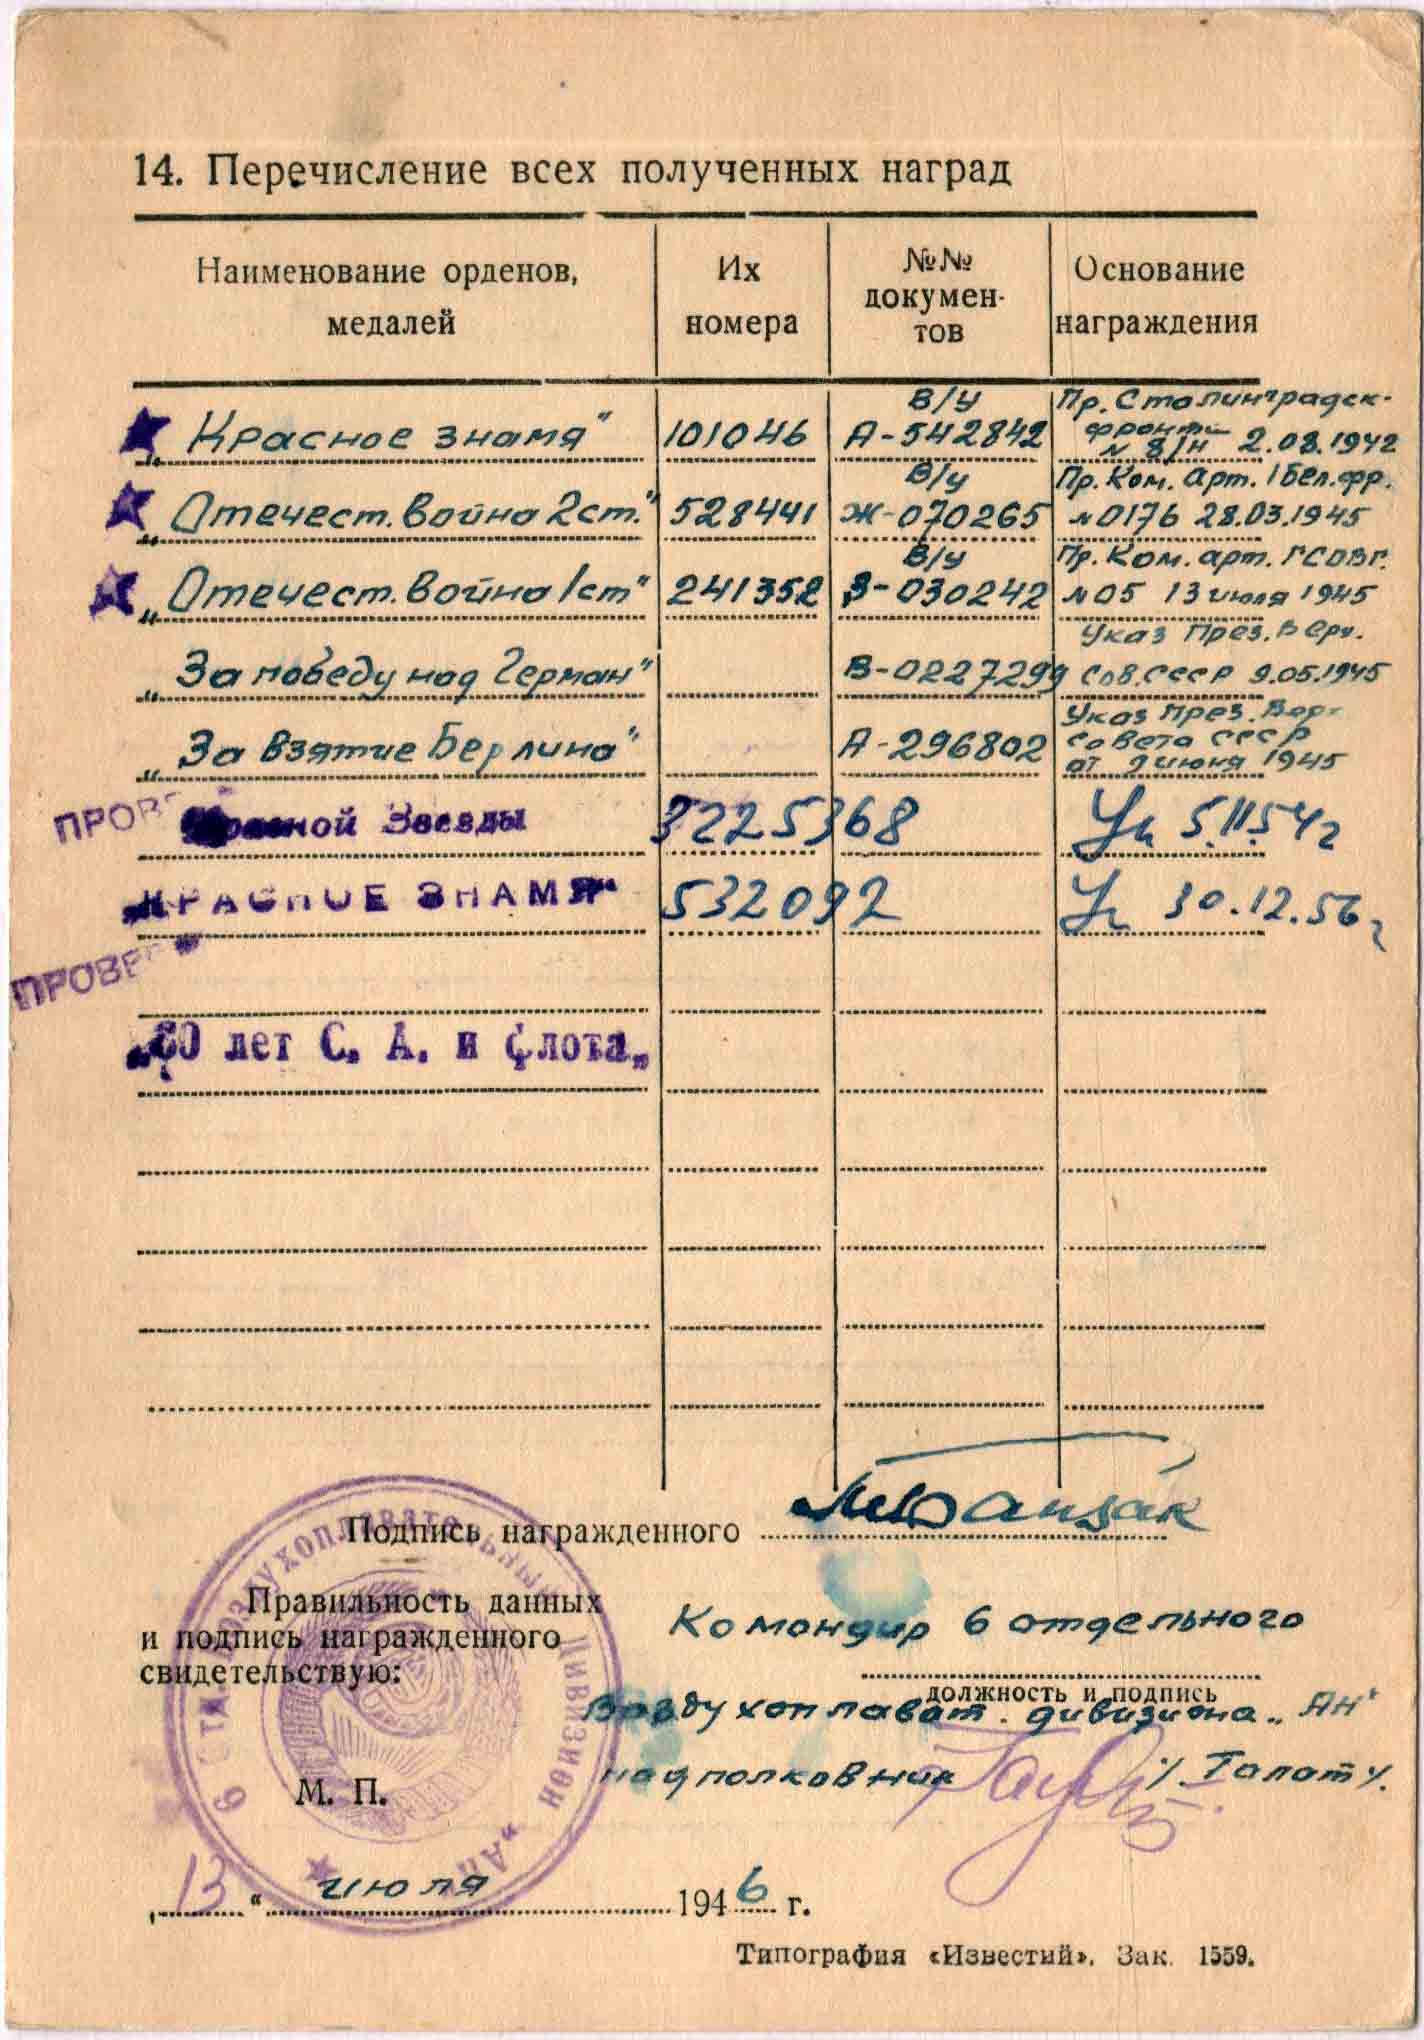 14. Перечисление всех полученных наград
Наименование орденов, медалей
Их номера
№№ докумен-тов
Основание награждения
„Красное знамя" 101046 В/у А-542842 Пр. Сталинградск. фронта № 8/н 2.08.1942
„Отечест. война 2ст." 528441 В/у Ж-070265 Пр. Ком. арт. 1 Бел. фр. №0176 28.03.1945
„Отечест. война 1ст" 241352 В/у В-030242 Пр. Ком. арт. ГСОВГ. №05 13 июля 1945
„За победу над Герман" В-0227299 Указ През. Верх. Сов. СССР 9.05.1945
„За взятие Берлина" А-296802 Указ През. Верх. Совета СССР от 9 июня 1945
ПРОВЕ
Красной Звезды 3225368 Ук 5.11.54г
„КРАСНОЕ ЗНАМЯ" 532092 Ук 30.12.56г
ПРОВЕР
лет С. А. и флота„
Подпись награжденного
Правильность данных
и подпись награжденного
свидетельствую:
Командир 6 отдельного
должность и подпись
Воздухоплават. дивизиона „Ан"
подполковник /Талат/
М. П.
6 воздухоплавательный дивизион „Ан"
„13" июля 1946 г.
Типография «Известий». Зак. 1559.